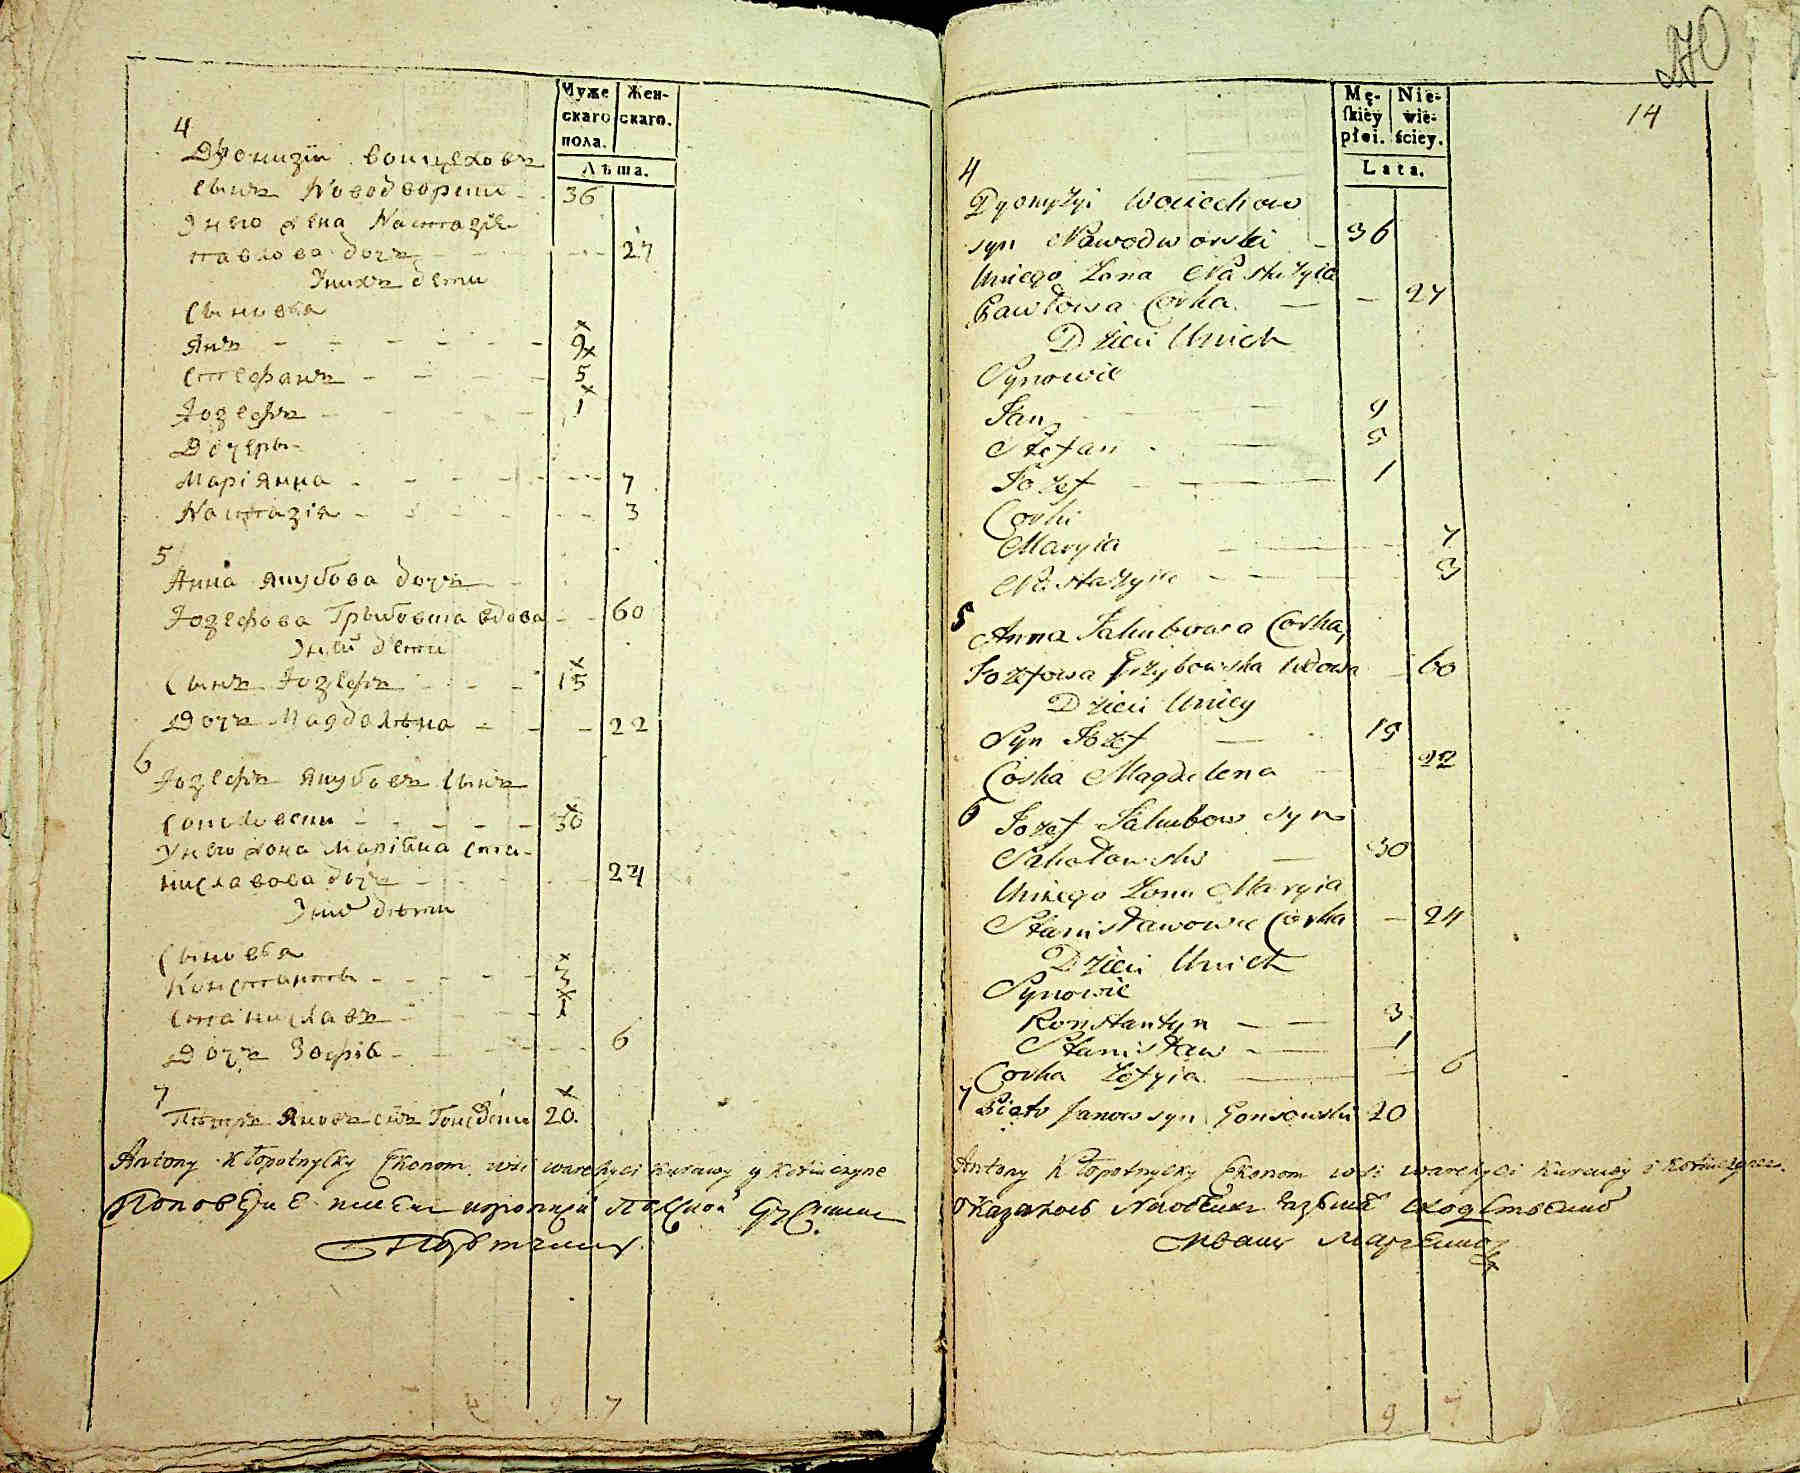 Муже
скаго
пола.
Жен-
скаго.
Лѣта.
4
Дыонизіи воицеховъ
сынъ Новодворски - 36
У него жена Настазія
павлова дочъ - - - 27
У нихъ дети
Сыновья
Янъ - - - - - - 9
Стефанъ - - - - 5
Іозефъ - - - - 1
Дочеры
Маріянна - - - - - - 7
Настазія - - - - - - 3
5
Анна якубова дочъ - -
Іозефова Грыбовска вдова - - 60
У неи дети
Сынъ Іозефъ - - - 15
Дочъ Магдалѣна - - - 22
6
Іозефъ якубовъ сынъ
Соколовски - - - - - 30
У него жона Маріана Ста-
ниславова дочъ - - - - 24
У них дѣти
Сыновья
Константы - - - - 3
Станиславъ - - - - 1
Дочъ Зофія - - - - - 6
7
Петръ Яновъ сынъ 20.
Antony Kłopotnycky Ekonom wsi
9 7
А70
14
Mę-
ſkiey
płci.
Nie-
wie-
ściey.
Lata.
4
Dyonyzyi Woiciechow
syn Nowodworski - 36
Uniego Zona Nastazyia
Pawłowa Corka - - 27
Dzieci Unich
Synowie
Jan - - - 9
Stefan - - 5
Jozef - - 1
Corki
Maryia - - - 7
Nastazyia - - - 3
5
Anna Jakubowa Corka,
Jozefowa Grzybowska Wdowa - 60
Dzieci Uniey
Syn Jozef - - 15
Corka Magdelena - 22
6 Jozef Jakubow syn
Sakołowski - 30
Uniego Zona Maryia
Stanisławowa Corka - 24
Dzieci Unich
Synowie
Konstantyn - - 3
Stanisław - - 1
Corka Zofyia - - 6
7 Piotr Janow syn Gonsowski 20
Antony Kłopotnycky Ekonom wsi
9 7